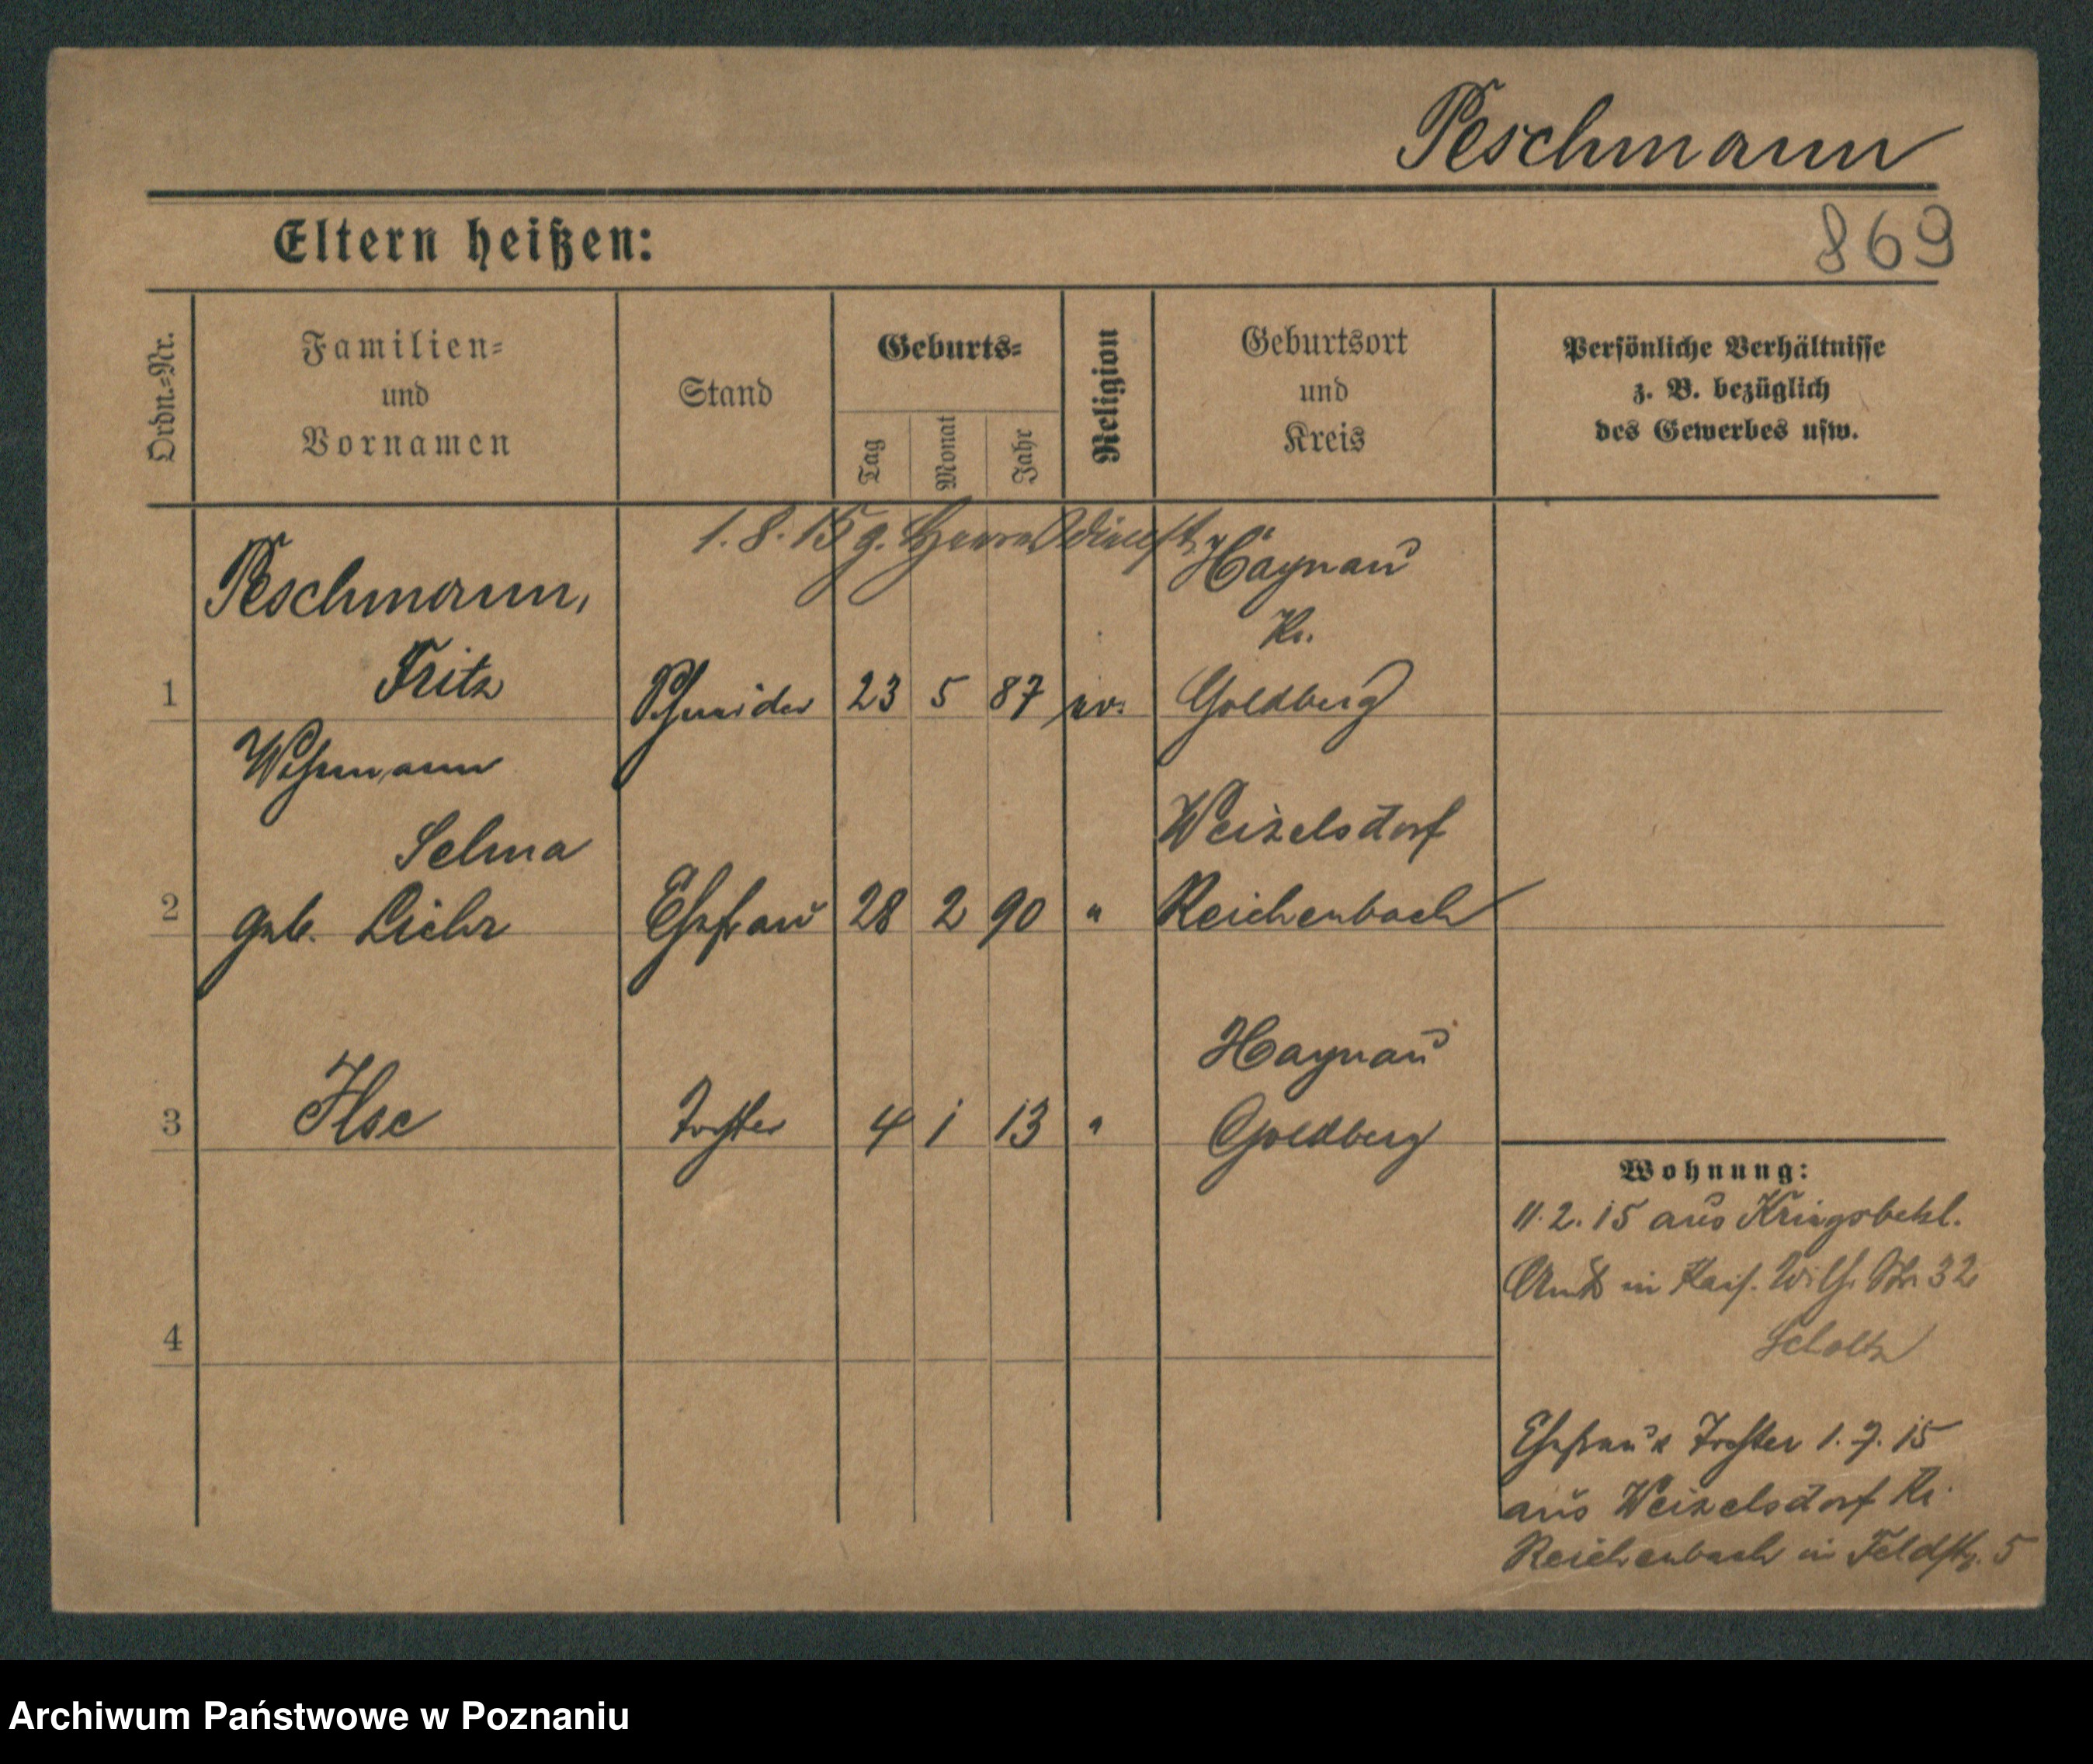 Peschmann
Eltern heißen:
869
Ordn.=Nr.
Familien=
und
Vornamen
Stand
Geburts=
Tag
Monat
Jahr
Religion
Geburtsort
und
Kreis
Persönliche Verhältnisse
z. B. bezüglich
des Gewerbes usw.
1.8.15 g. Heeresdienst
1
Peschmann,
Fritz
Schneider
23 5 87
ev.
Haynau
Kr.
Goldberg
2
Selma
geb. Liehr
Ehefrau
28 2 90
"
Weizelsdorf
Reichenbach
3
Ilse
Tochter
4 1 13
"
Haynau
Goldberg
4
Wohnung:
11.2.15 aus Kriegsbekl.
Amt in Kais. Wilh. Str. 32
Scholtz
Ehefrau u Tochter 1.7.15
aus Weizelsdorf Kr.
Reichenbach in Feldstr. 5
Archiwum Państwowe w Poznaniu